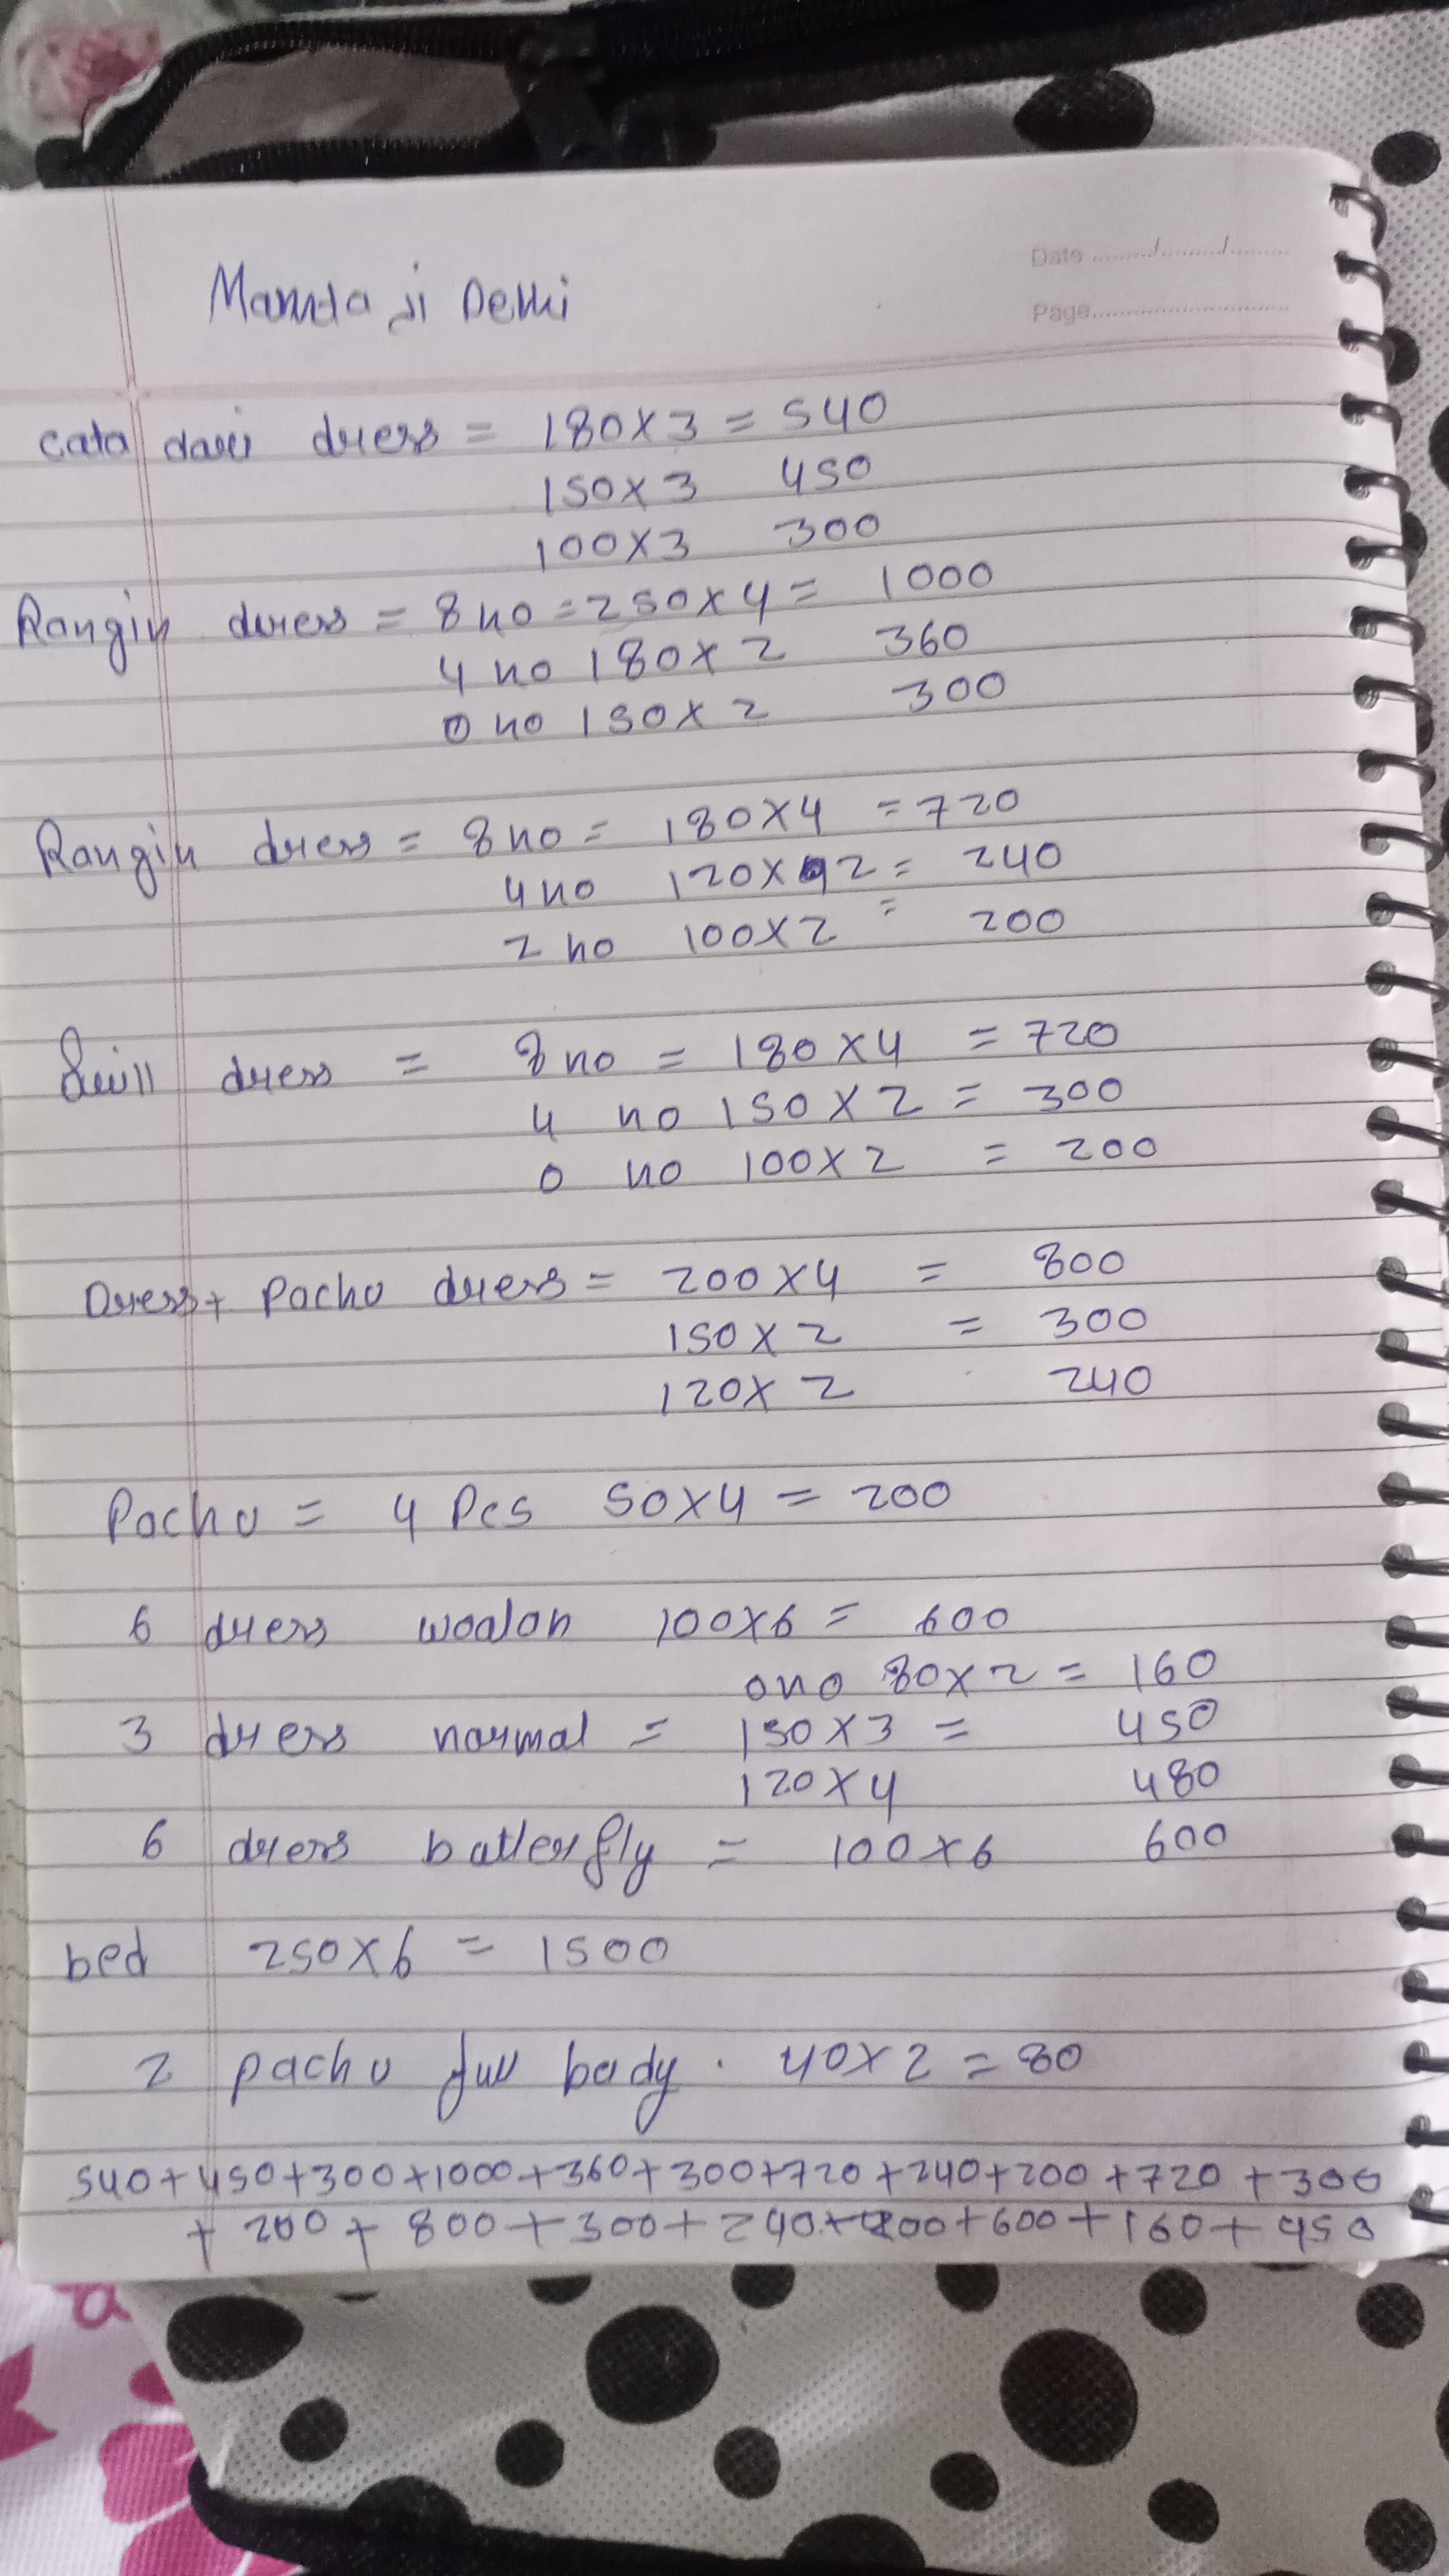 Mamta Ji Delhi
Date ......../......../........
Page................................
cata dari dress = 180x3 = 540
150x3 450
100x3 300
Rangin dress = 8 no = 250x4 = 1000
4 no 180x2 360
0 no 150x2 300
Rangin dress = 8 no = 180x4 = 720
4 no 120x2 = 240
2 no 100x2 = 200
dress = 8 no = 180x4 = 720
4 no 150x2 = 300
0 no 100x2 = 200
Dress + Pachu dress = 200x4 = 800
150x2 = 300
120x2 240
Pachu = 4 Pcs 50x4 = 200
6 dress woolon 100x6 = 600
0 no 80x2 = 160
3 dress normal = 150x3 = 450
120x4 480
6 dress batterfly = 100x6 600
bed 250x6 = 1500
2 pachu full body . 40x2 = 80
540+450+300+1000+360+300+720+240+200+720+300
+200+800+300+240+200+600+160+450